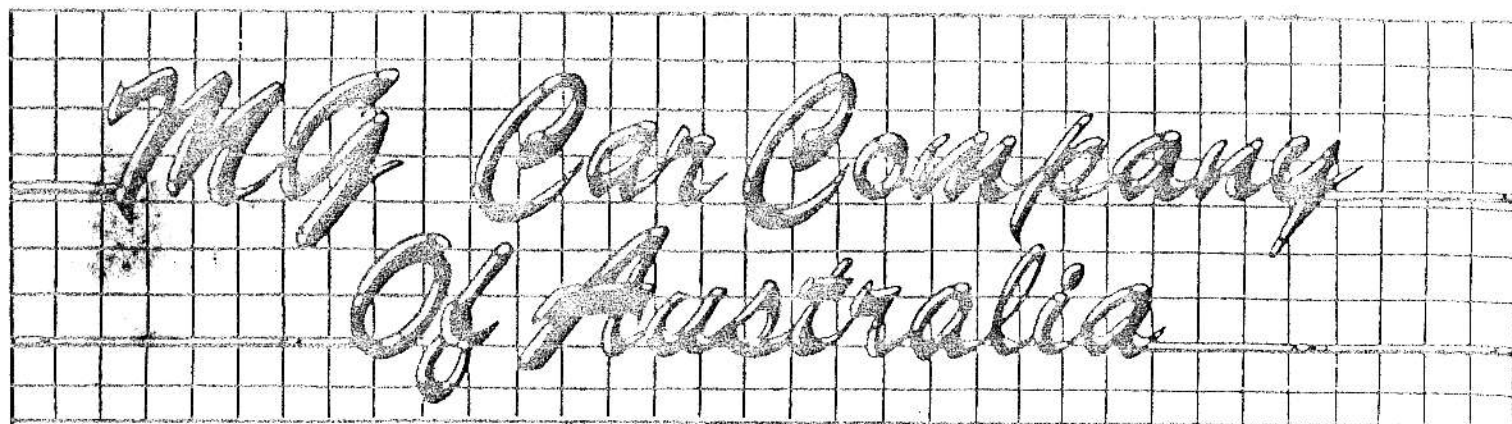 MG Car Company
Of Australia